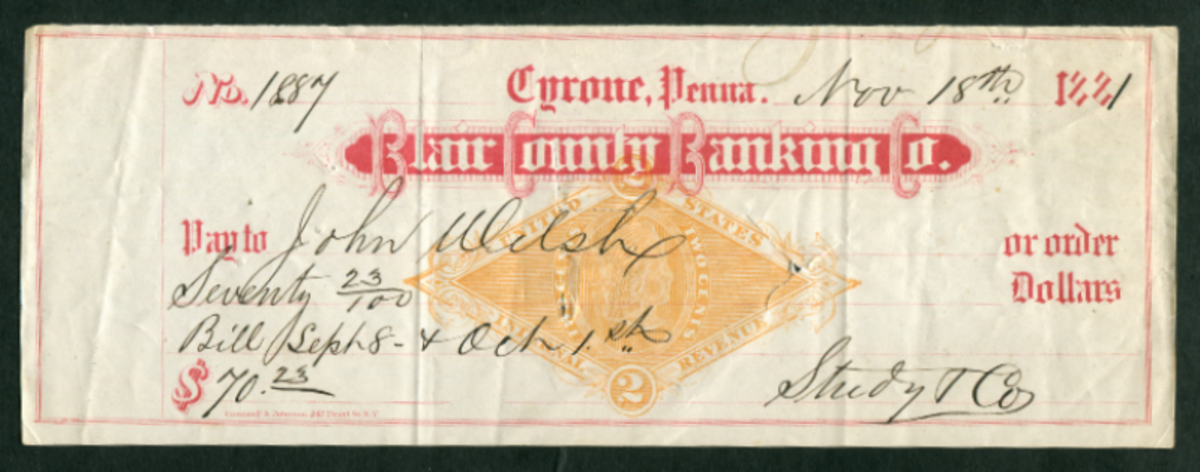 No. 1887 Tyrone, Penna. Nov 18th 1881
Blair County Banking Co.
Pay to John Welsh or order
Seventy 23/100 Dollars
Bill Sept 8 - & Oct 1.st
$ 70.23 Study & Co
2
UNITED STATES
TWO CENTS
INTERNAL REVENUE
2